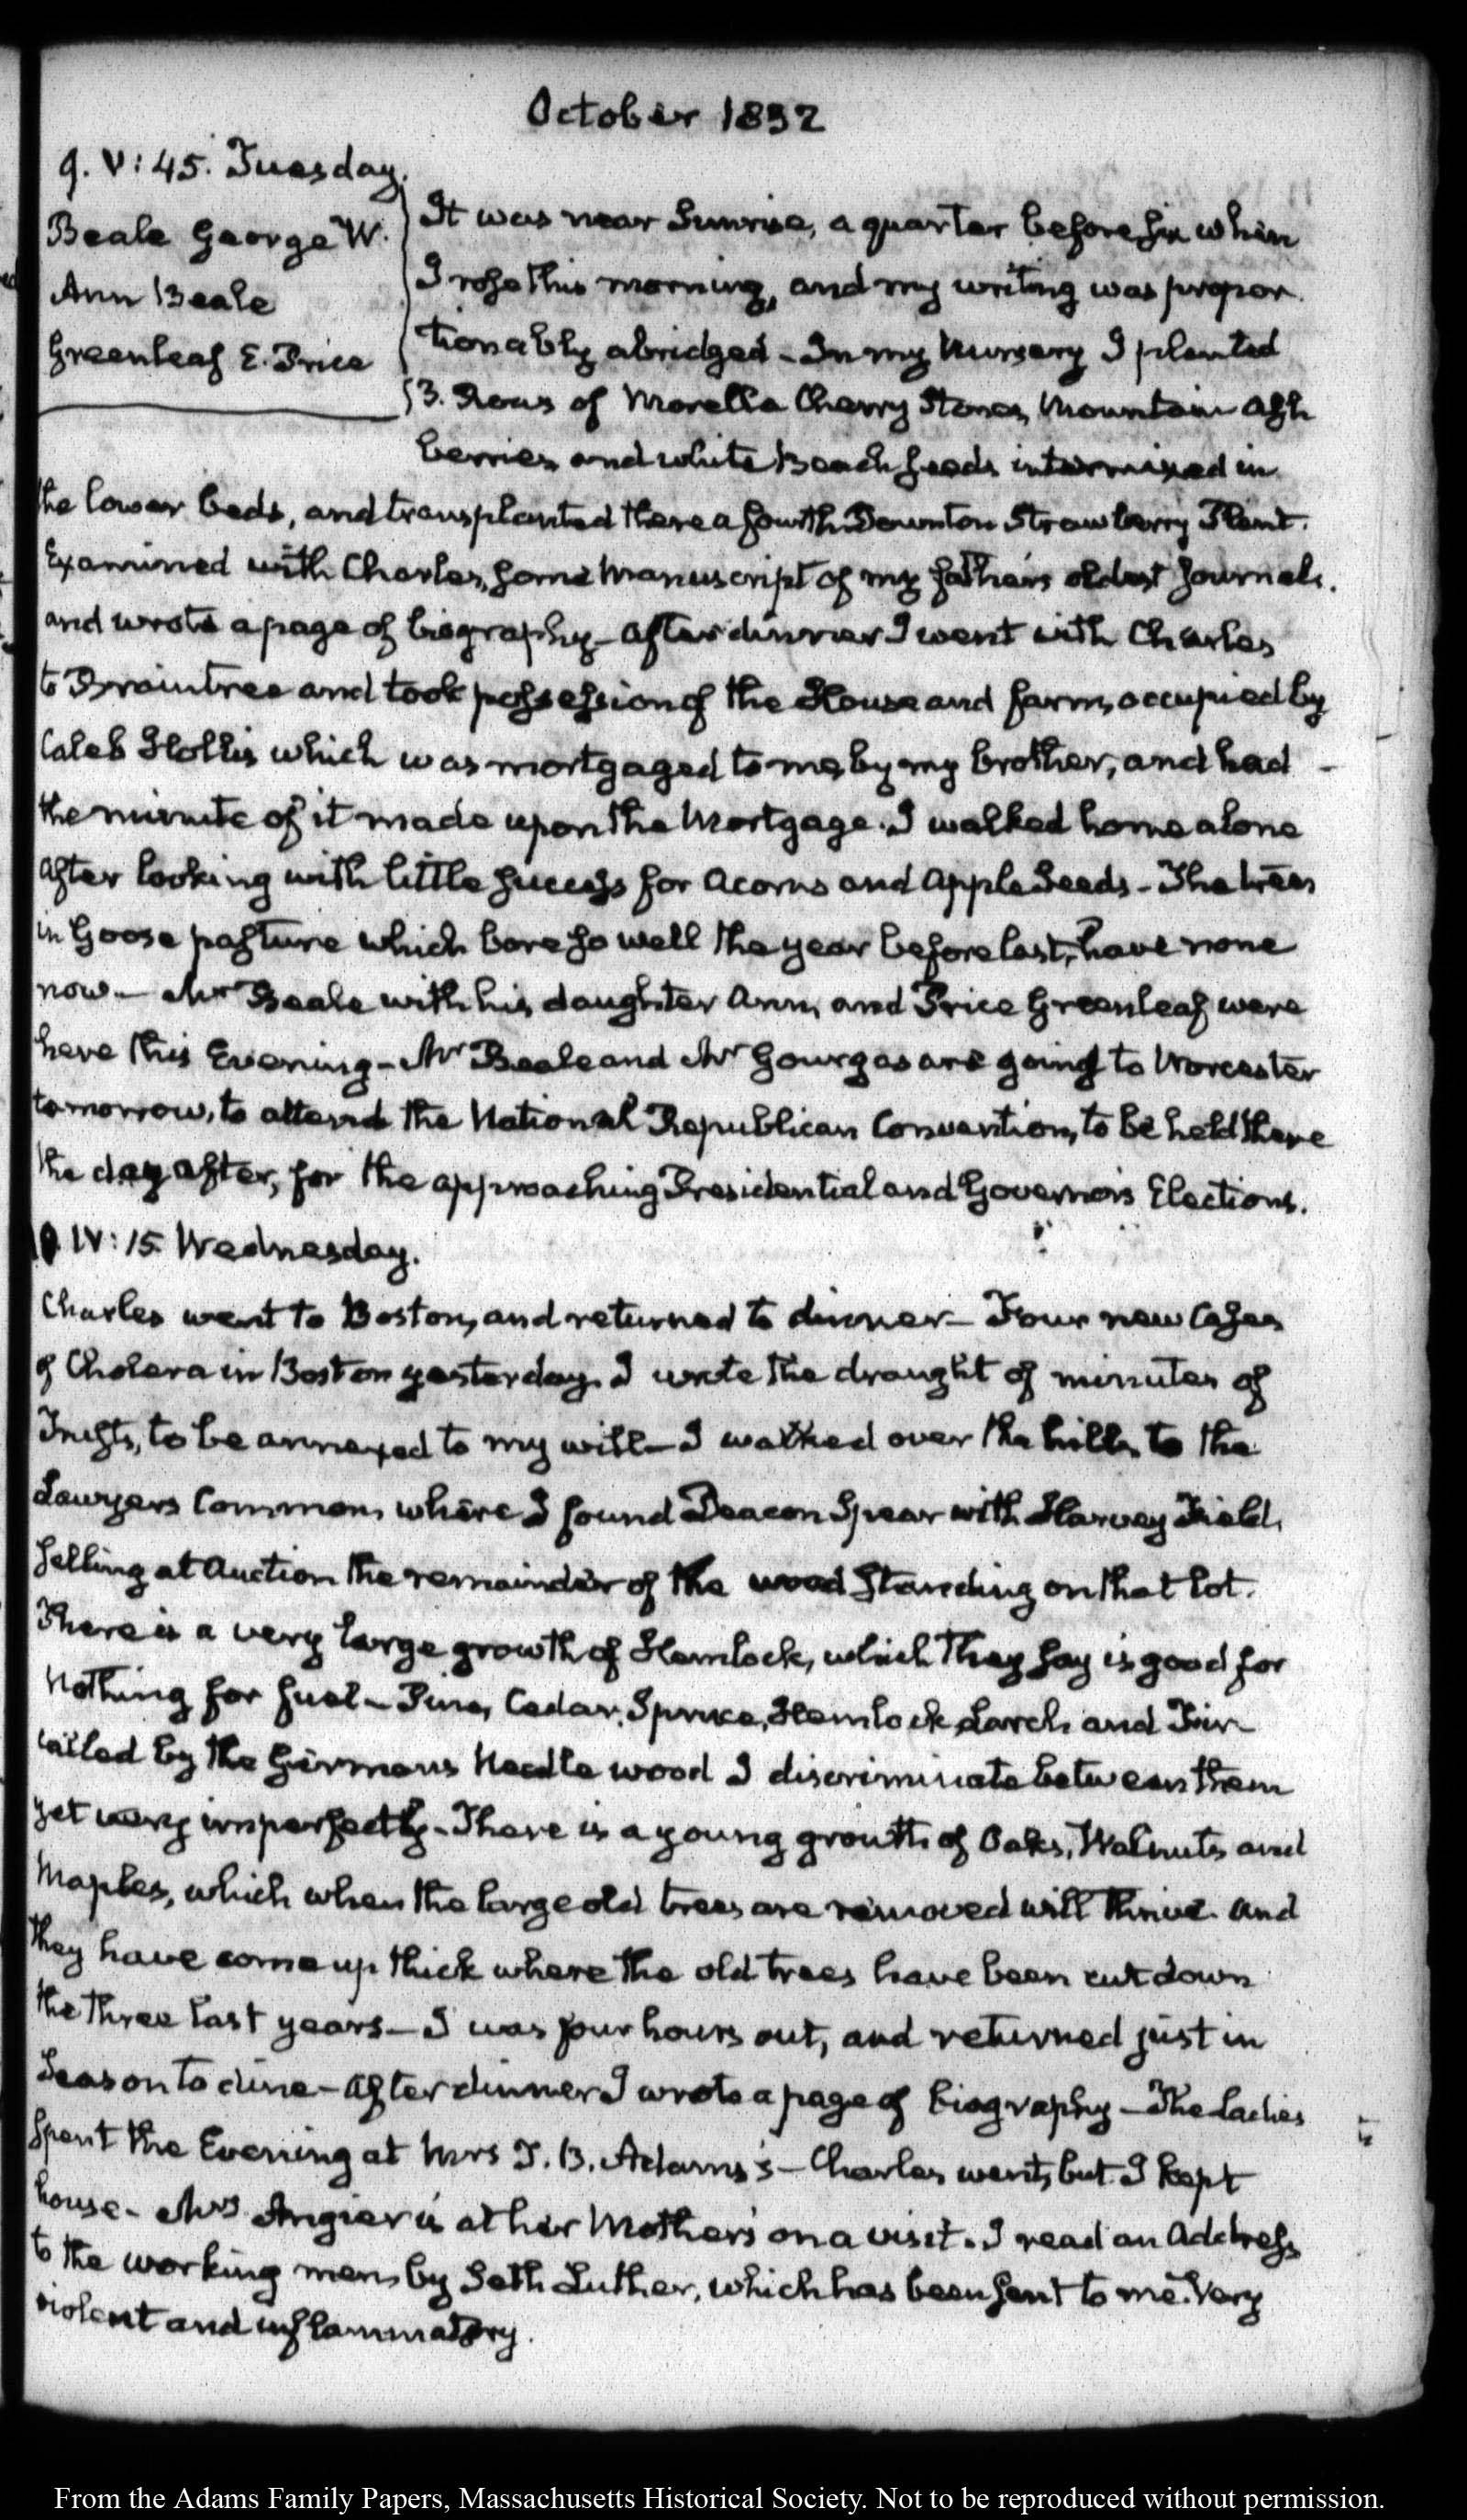 October 1832
9. V:45. Tuesday.
Beale George W.
Ann Beale
Greenleaf E. Price
It was near Sunrise, a quarter before six when
I rose this morning, and my writing was propor
tionably abridged - In my Nursery I planted
3. Rows of Morella Cherry Stones, Mountain Ash
berries and white Beach seeds intermixed in
the lower beds, and transplanted there a fourth Downton Strawberry Plant.
Examined with Charles, some Manuscript of my father's oldest Journals.
and wrote a page of biography - After dinner I went with Charles
to Braintree and took possession of the House and farm, occupied by
Caleb Hollis which was mortgaged to me, by my brother, and had
the minute of it made upon the Mortgage. I walked home alone
after looking with little success for Acorns and Apple Seeds - The trees
in Goose pasture which bore so well the year before last, have none
now - Mr Beale with his daughter Ann, and Price Greenleaf were
here this Evening - Mr Beale and Mr Gourgas are going to Worcester
tomorrow, to attend the National Republican Convention, to be held there
the day after, for the approaching Presidential and Governor's Elections.
10. IV:15. Wednesday.
Charles went to Boston, and returned to dinner - Four new Cases
of Cholera in Boston yesterday. I wrote the draught of minutes of
Trusts, to be annexed to my will - I walked over the hills to the
Lawyers Common, where I found Deacon Spear with Harvey Field,
selling at Auction the remainder of the wood standing on that lot.
There is a very large growth of Hemlock, which they say is good for
nothing for fuel - Pine, Cedar, Spruce, Hemlock Larch and Fir
called by the Germans Needle wood I discriminate between them
yet very imperfectly - There is a young growth of Oaks, Walnuts and
Maples, which when the large old trees are removed will thrive. And
they have come up thick where the old trees have been cut down
the three last years - I was four hours out, and returned just in
Season to dine - After dinner I wrote a page of biography - The Ladies
spent the Evening at Mrs T. B. Adams's - Charles went, but I kept
house - Mrs Angier is at her Mother's on a visit. I read an Address
to the working men, by Seth Luther, which has been sent to me. Very
violent and inflammatory.
From the Adams Family Papers, Massachusetts Historical Society. Not to be reproduced without permission.